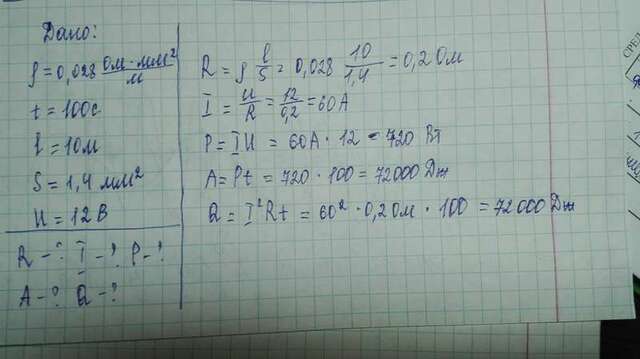 Дано:
ρ = 0,028 Ом·мм²/м
t = 100с
l = 10м
S = 1,4 мм²
U = 12 В
R - ? I - ? P - ?
A - ? Q - ?
R = ρ l/S = 0,028 10/1,4 = 0,2 Ом
I = U/R = 12/0,2 = 60 А
P = IU = 60А · 12 = 720 Вт
A = Pt = 720 · 100 = 72000 Дж
Q = I²Rt = 60² · 0,2 Ом · 100 = 72000 Дж